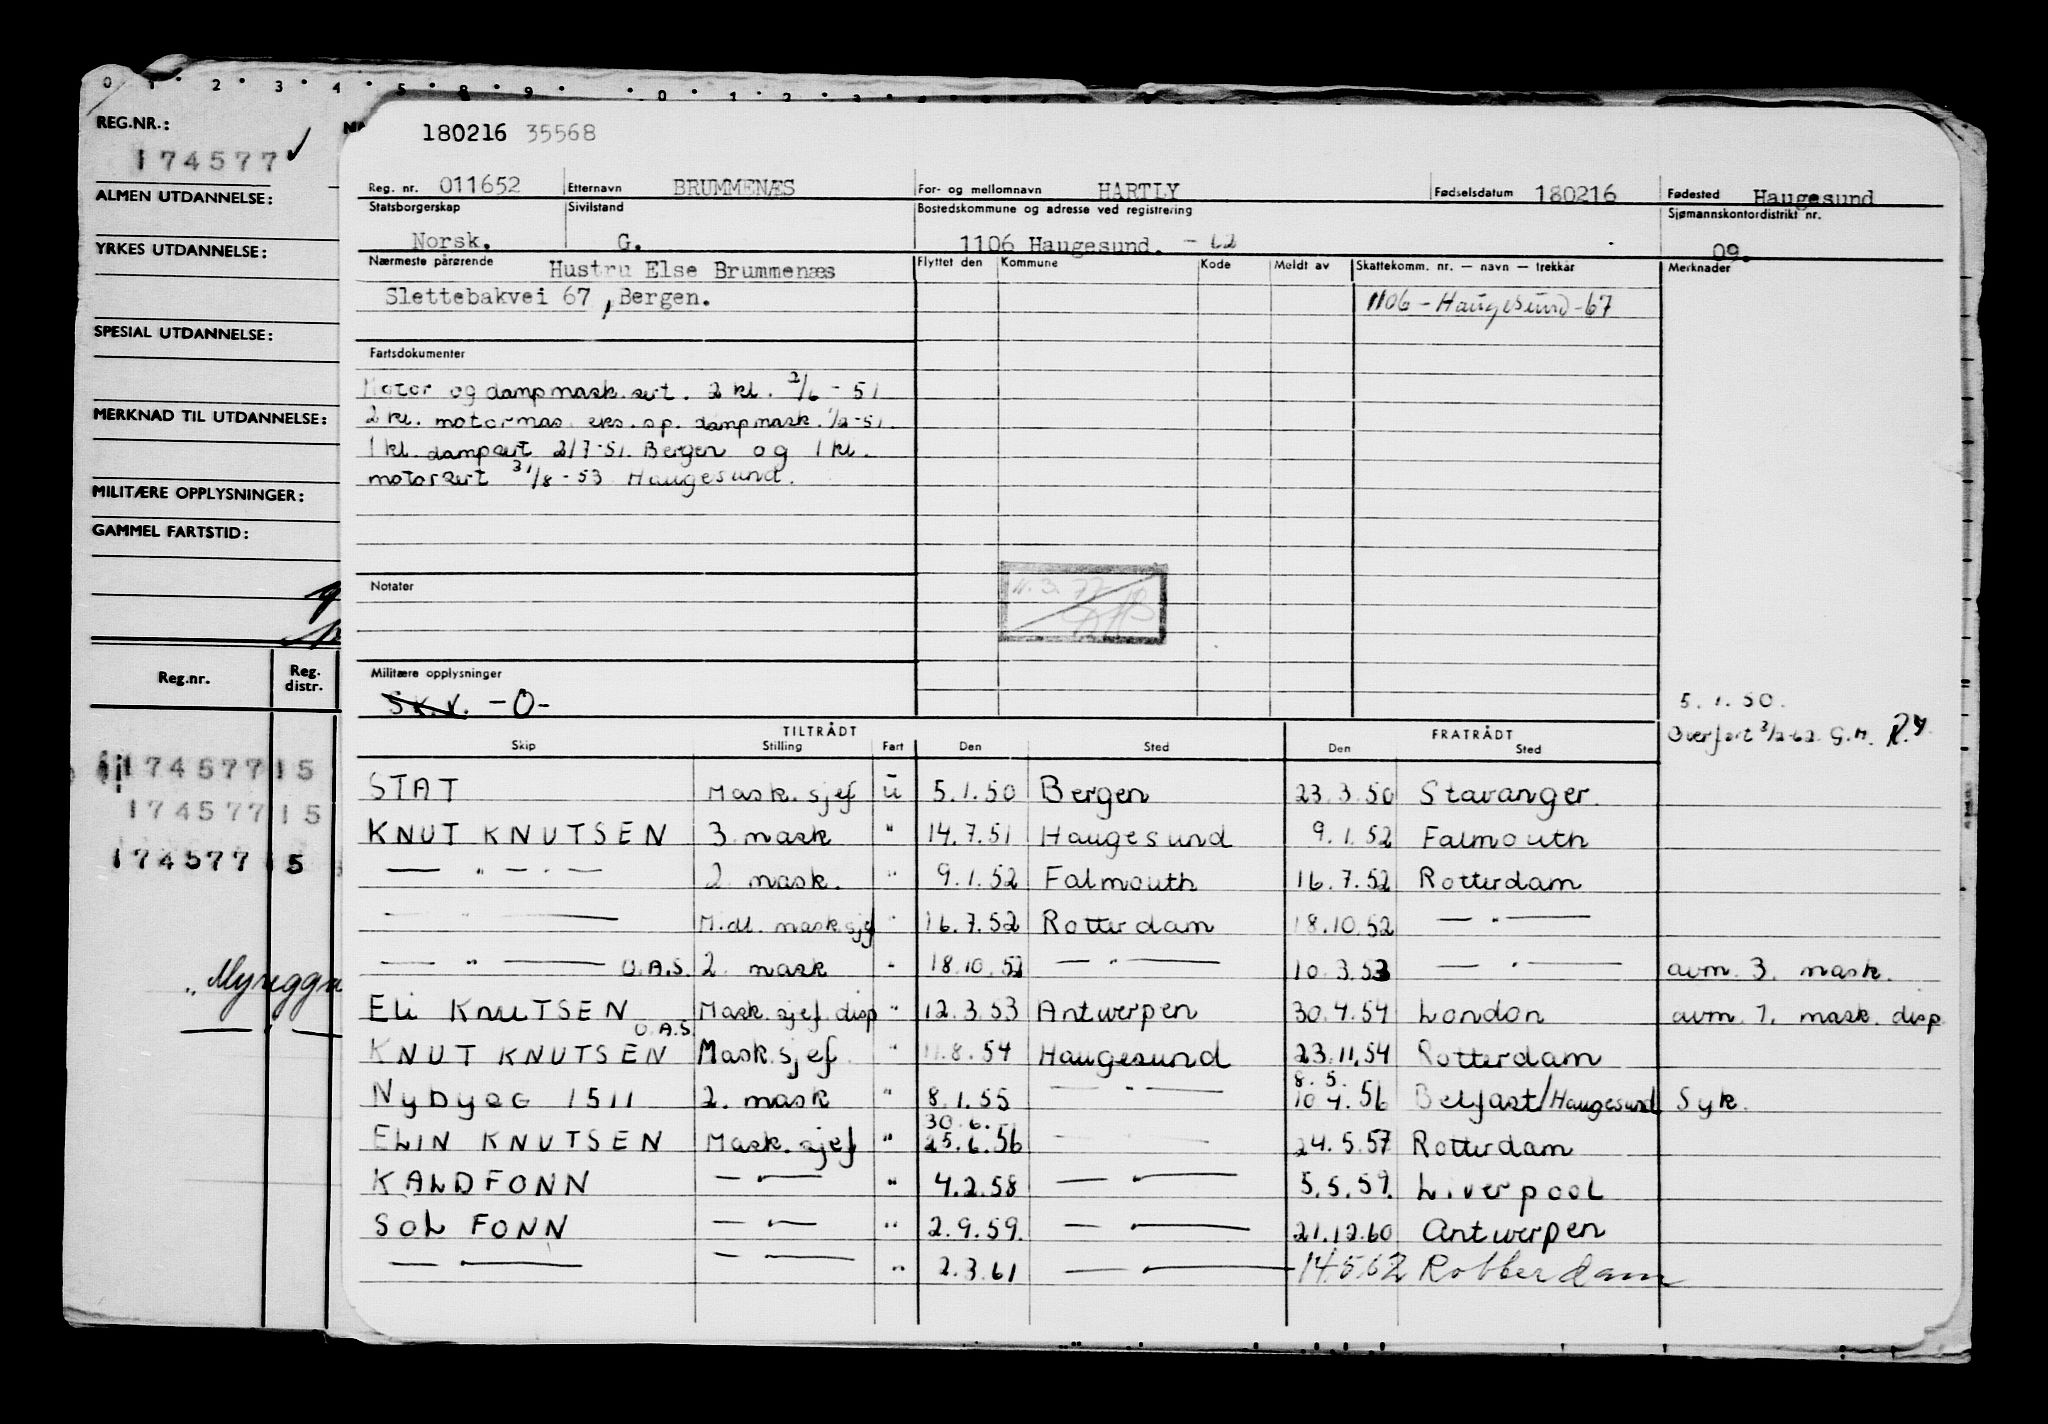 0 1 2 3 4 5 8 9 0 1 2 3
REG.NR.:
174577
ALMEN UTDANNELSE:
YRKES UTDANNELSE:
SPESIAL UTDANNELSE:
MERKNAD TIL UTDANNELSE:
MILITÆRE OPPLYSNINGER:
GAMMEL FARTSTID:
Reg.nr. Reg. distr.
174577 15
174577 15
174577 15
180216 35568
Reg. nr. 011652 Etternavn BRUMMENÆS For- og mellomnavn HARTLY Fødselsdatum 180216 Fødested Haugesund
Statsborgerskap Sivilstand Bostedskommune og adresse ved registrering Sjømannskontordistrikt nr.
Norsk. G. 1106 Haugesund. - 62 09.
Nærmeste pårørende Hustru Else Brummenæs Flyttet den Kommune Kode Meldt av Skattekomm. nr. — navn — trekkår Merknader
Slettebakvei 67, Bergen. 1106 - Haugesund - 67
Fartsdokumenter
Motor og dampmask.sert. 2 kl. 2/6 - 51
2 kl. motormas. eks. op. dampmask. 1/2-51.
1 kl. dampsert 2/7-51. Bergen og 1 kl.
motorsert 31/8 - 53 Haugesund.
Notater
11.3.77
Militære opplysninger
Sk.V. -O-
5.1.50.
Overført 3/2-62 G.M.
TILTRÅDT FRATRÅDT
Skip Stilling Fart Den Sted Den Sted
STAT Mask.sjef u 5.1.50 Bergen 23.3.50 Stavanger.
KNUT KNUTSEN 3 mask " 14.7.51 Haugesund 9.1.52 Falmouth
— " — 2. mask. " 9.1.52 Falmouth 16.7.52 Rotterdam
— " — M.dl. mask.sjef " 16.7.52 Rotterdam 18.10.52 — " —
— " — O.A.S. 2. mask - 18.10.52 — " — 10.3.53 — " — avm. 3. mask.
Eli KNUTSEN O.A.S. Mask.sjef.disp " 12.3.53 Antwerpen 30.4.54 London avm. 1. mask. disp
KNUT KNUTSEN Mask.sjef. " 11.8.54 Haugesund 23.11.54 Rotterdam
8.5.
Nybygg 1511 2. mask " 8.1.55 — " — 10.4.56 Belfast/Haugesund Syk.
30.6.
ELIN KNUTSEN Mask.sjef " 25.6.56 — " — 24.5.57 Rotterdam
KALDFONN — " — " 4.2.58 — " — 5.5.59. Liverpool
SOLFONN — " — " 2.9.59. — " — 21.12.60 Antwerpen
— " — — " — " 2.3.61 — " — 14.5.62 Rotterdam